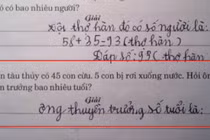 có bao nhiêu người?
Giải
đội thợ hàn đó có số người là:
58+35=93(thợ hàn)
Đáp số: 93 (thợ hàn
n tàu thủy có 45 con cừu. 5 con bị rơi xuống nước. Hỏi ôn
n trưởng bao nhiêu tuổi?
Giải
Ông thuyền trưởng số tuổi là: